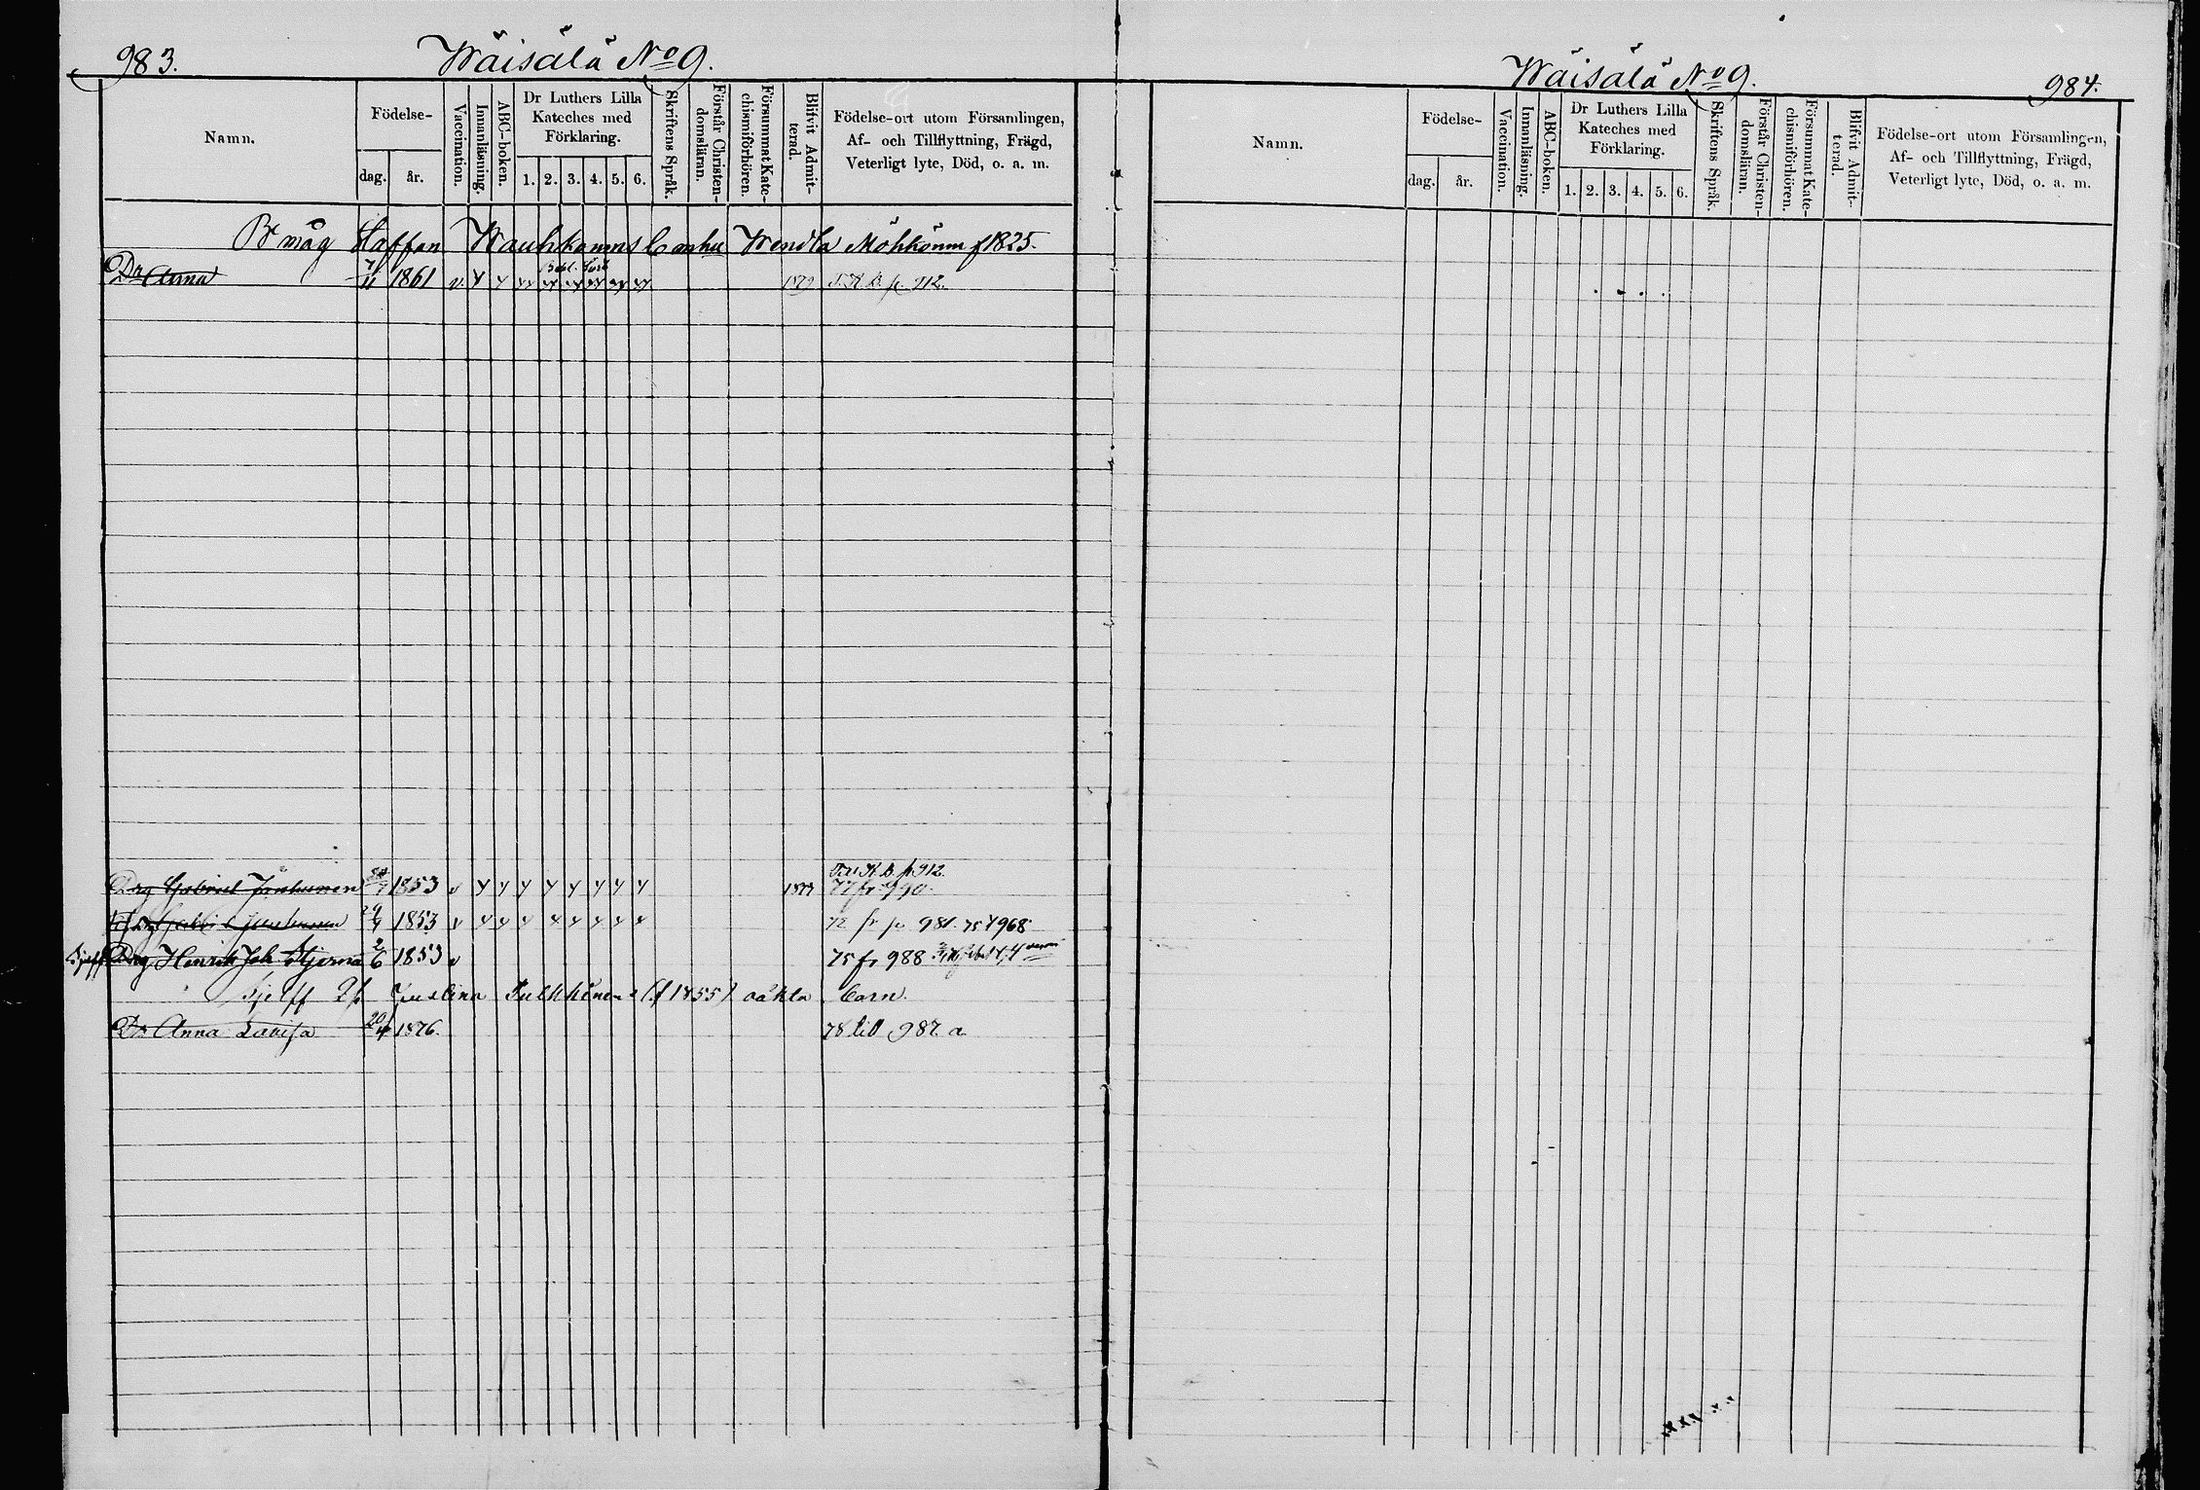 983. Wäisälä No 9.
Namn.
Födelse-
dag.
år.
Vaccination.
Innanläsning.
ABC-boken.
Dr Luthers Lilla
Kateches med
Förklaring.
1. 2. 3. 4. 5. 6.
Skriftens Språk.
Förstår Christen-
domsläran.
Försummat Kate-
chismiförhören.
Blifvit Admit-
terad.
Födelse-ort utom Församlingen,
Af- och Tillflyttning, Frägd,
Veterligt lyte, Död, o. a. m.
måg Staffan Wauhkonens Wendla Möhkönen f 1825.
Dr Anna 7/11 1861 v 1879 p. 912.
p 912.
Drg Gabriel Janhunen 1853 v 77 fr 990.
1853 v 72 fr p 981. 75 t 968
Sjelff Drg Henrik Joh Stjerna 2/6 1853 v 75 fr 988
Sjelff Justina Pulkkinens (f 1855) oäkta barn.
Dr Anna Lovisa 20/4 1876. 78 till 987 a
Wäisälä No 9. 984.
Namn.
Födelse-
dag.
år.
Vaccination.
Innanläsning.
ABC-boken.
Dr Luthers Lilla
Kateches med
Förklaring.
1. 2. 3. 4. 5. 6.
Skriftens Språk.
Förstår Christen-
domsläran.
Försummat Kate-
chismiförhören.
Blifvit Admit-
terad.
Födelse-ort utom Församlingen,
Af- och Tillflyttning, Frägd,
Veterligt lyte, Död, o. a. m.